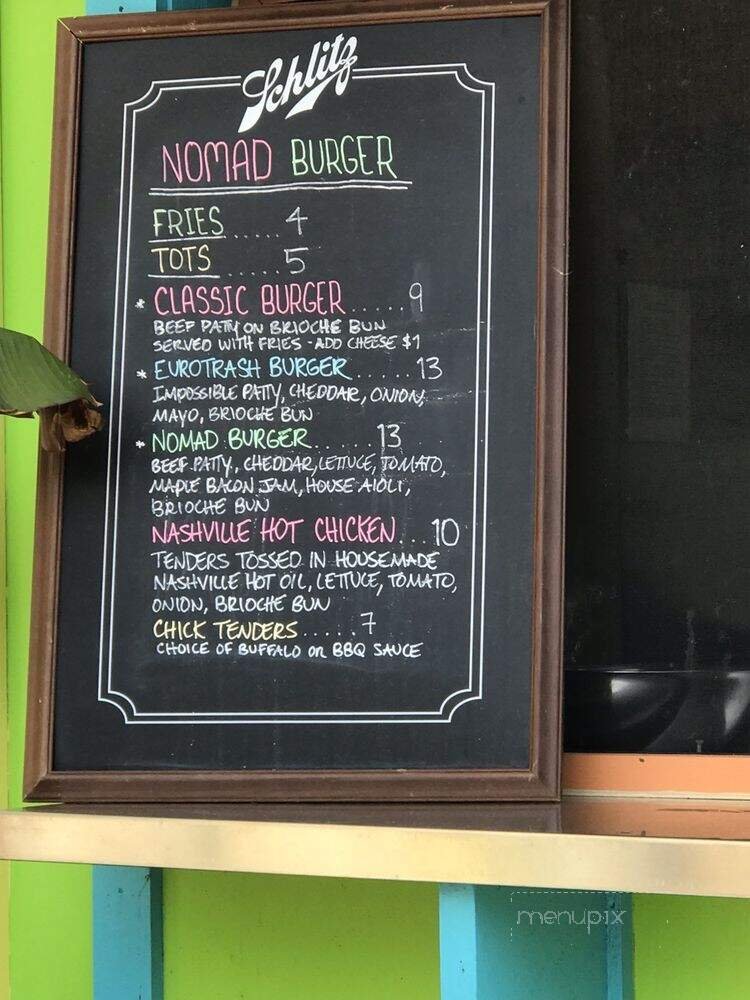 Schlitz
NOMAD BURGER
FRIES ..... 4
TOTS ...... 5
* CLASSIC BURGER ...... 9
BEEF PATTY ON BRIOCHE BUN
SERVED WITH FRIES - ADD CHEESE $1
* EUROTRASH BURGER ...... 13
IMPOSSIBLE PATTY, CHEDDAR, ONION,
MAYO, BRIOCHE BUN
* NOMAD BURGER ...... 13
BEEF PATTY, CHEDDAR, LETTUCE, TOMATO,
MAPLE BACON JAM, HOUSE AIOLI,
BRIOCHE BUN
NASHVILLE HOT CHICKEN ... 10
TENDERS TOSSED IN HOUSEMADE
NASHVILLE HOT OIL, LETTUCE, TOMATO,
ONION, BRIOCHE BUN
CHICK TENDERS ..... 7
CHOICE OF BUFFALO OR BBQ SAUCE
menupix